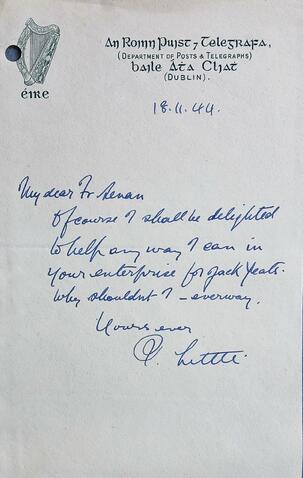 An Roinn Puist ⁊ Telegrafa,
(DEPARTMENT OF POSTS & TELEGRAPHS)
Baile Áta Cliat
(DUBLIN).
éire
18.11.44.
My dear Fr Senan
Of course I shall be delighted
to help any way I can in
your enterprise for Jack Yeats.
Why shouldn't I -
Yours ever
P. Little.